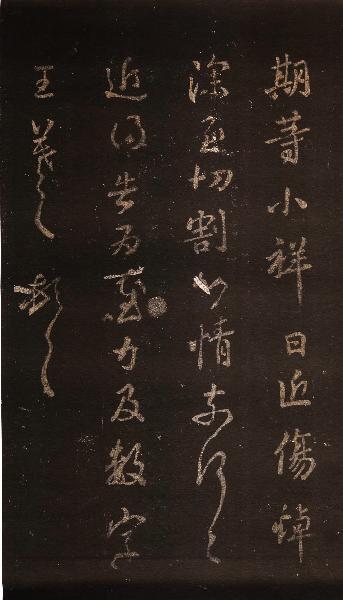 期等小祥日近傷悼
深至切割心情奈何奈何
近得告為慰力及數字
王羲之頓首